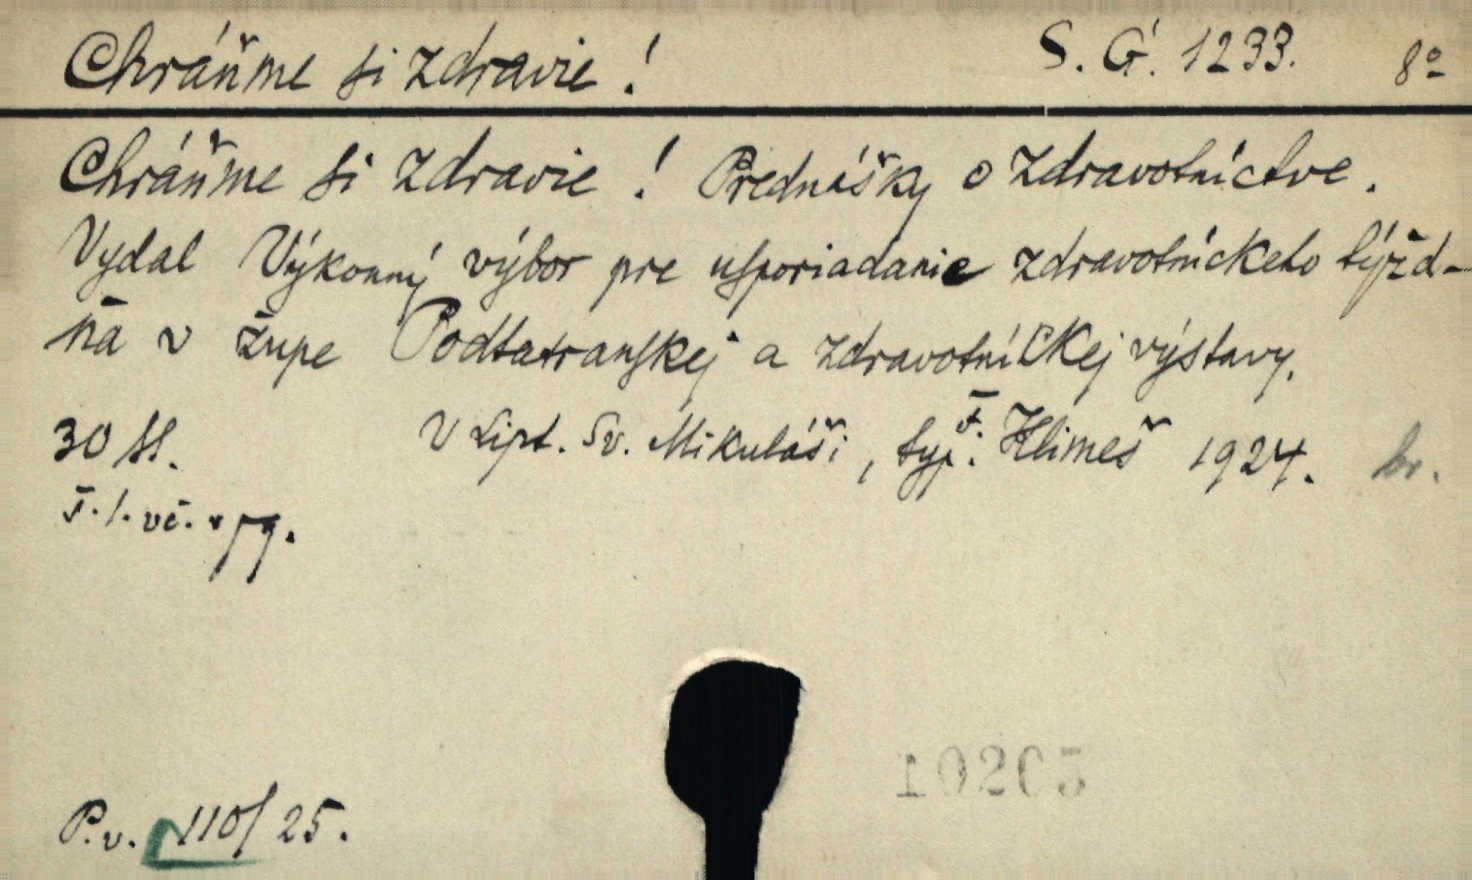 Chráňme si zdravie! S. G. 1233. 8º
Chráňme si zdravie! Prednášky o zdravotníctve.
Vydal Výkonný výbor pre usporiadanie zdravotníckeho týžd-
ňa v župe Podtatranskej a zdravotníckej výstavy.
30 st. V Lipt. Sv. Mikuláši, typ. F. Klimeš 1924. br.
P.v. 110/25.
10265